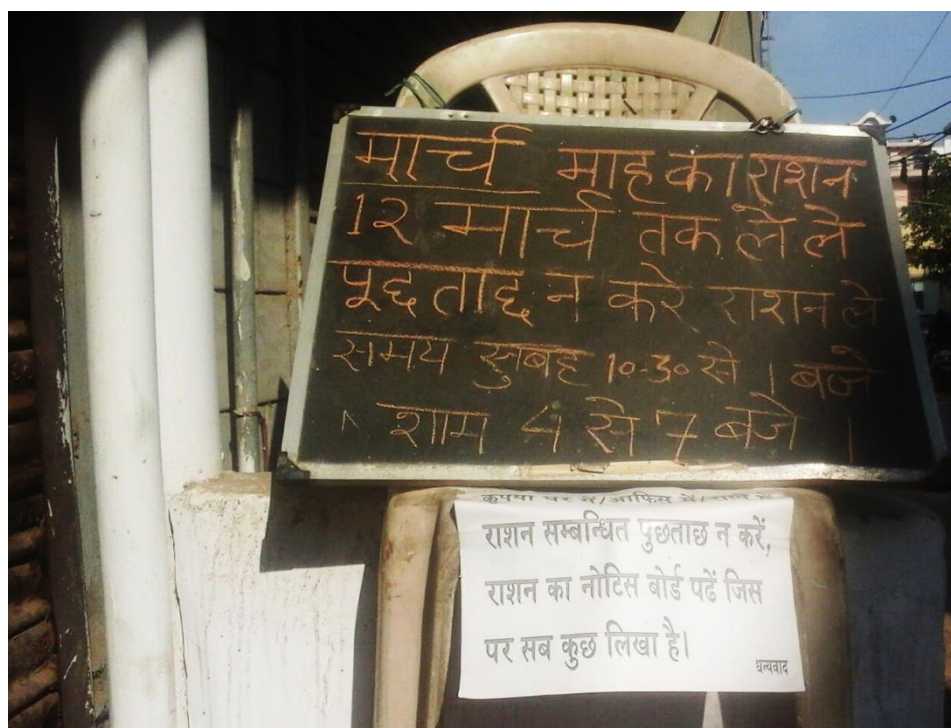 मार्च माह का राशन
12 मार्च तक ले ले
पूछताछ न करे राशन ले
समय सुबह 10.30 से 1 बजे
शाम 4 से 7 बजे ।
कृपया घर में/आफिस में/
राशन सम्बन्धित पुछताछ न करें,
राशन का नोटिस बोर्ड पढें जिस
पर सब कुछ लिखा है।
धन्यवाद